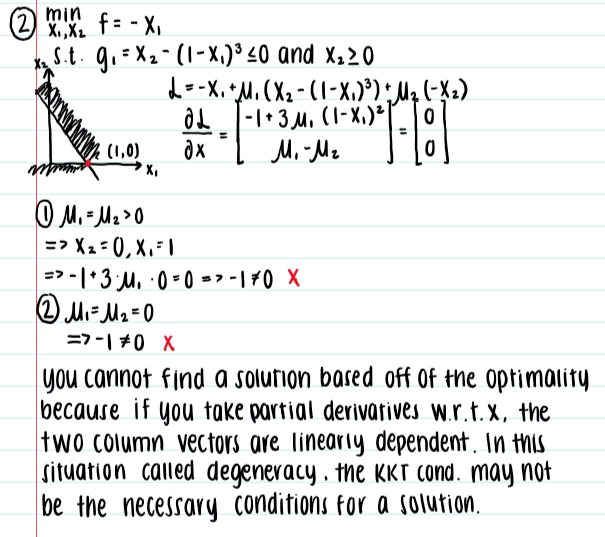 ② min f = - X₁
X₁,X₂
s.t. g₁ = X₂ - (1-X₁)³ ≤0 and X₂≥0
X₂
L = -X₁ + μ₁(X₂ - (1-X₁)³) + μ₂(-X₂)
∂L/∂x = [-1+3μ₁(1-X₁)² ; μ₁-μ₂] = [0 ; 0]
(1,0)
X₁
① μ₁=μ₂>0
=> X₂=0, X₁=1
=> -1+3·μ₁·0=0 => -1≠0 X
② μ₁=μ₂=0
=> -1≠0 X
you cannot find a solution based off of the optimality
because if you take partial derivatives w.r.t. x, the
two column vectors are linearly dependent. In this
situation called degeneracy. the KKT cond. may not
be the necessary conditions for a solution.